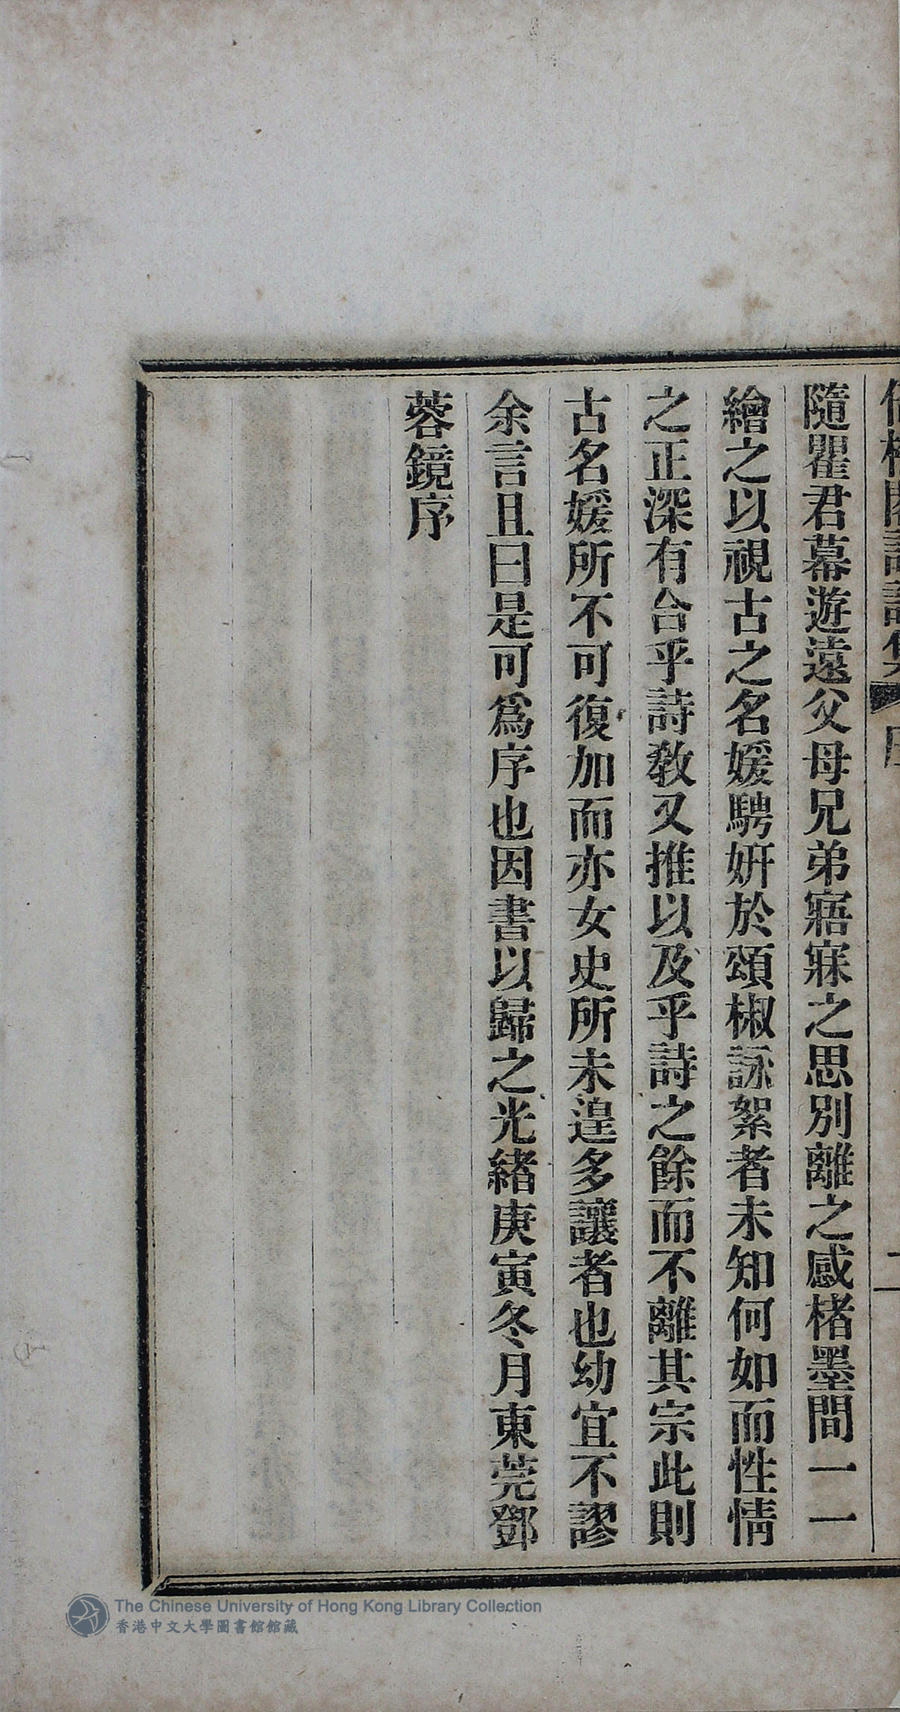 隨瞿君幕遊遠父母兄弟寤寐之思別離之感楮墨間一一
繪之以視古之名媛騁妍於頌椒詠絮者未知何如而性情
之正深有合乎詩敎又推以及乎詩之餘而不離其宗此則
古名媛所不可復加而亦女史所未遑多讓者也幼宜不謬
余言且曰是可爲序也因書以歸之光緒庚寅冬月東莞鄧
蓉鏡序
The Chinese University of Hong Kong Library Collection
香港中文大學圖書館館藏